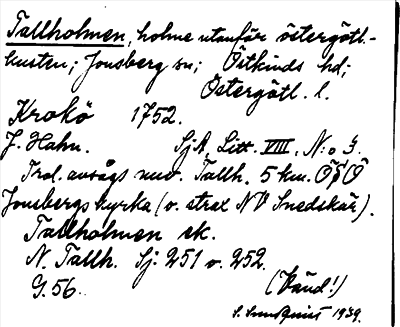 Tallholmen, holme utanför östergötl.-
kusten; Jonsberg sn; Östkinds hd;
Östergötl. l.
Krokö 1752.
J. Hahn. SjA, Litt. VIII, N:o 3.
Trol. avsågs nuv. Tallh. 5 km. OSO
Jonsbergs kyrka (o. strax NV Snedskär).
Tallholmen ek.
N. Tallh. Sj: 251 o. 252.
G. 56. (Vänd!)
S. Sundquist 1939.